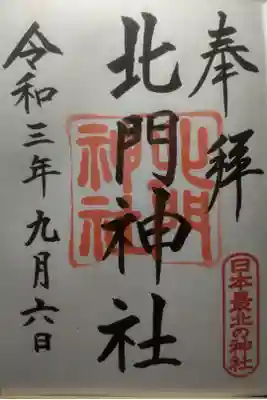 奉拝
北門神社
北門神社
令和三年九月六日
日本最北の神社